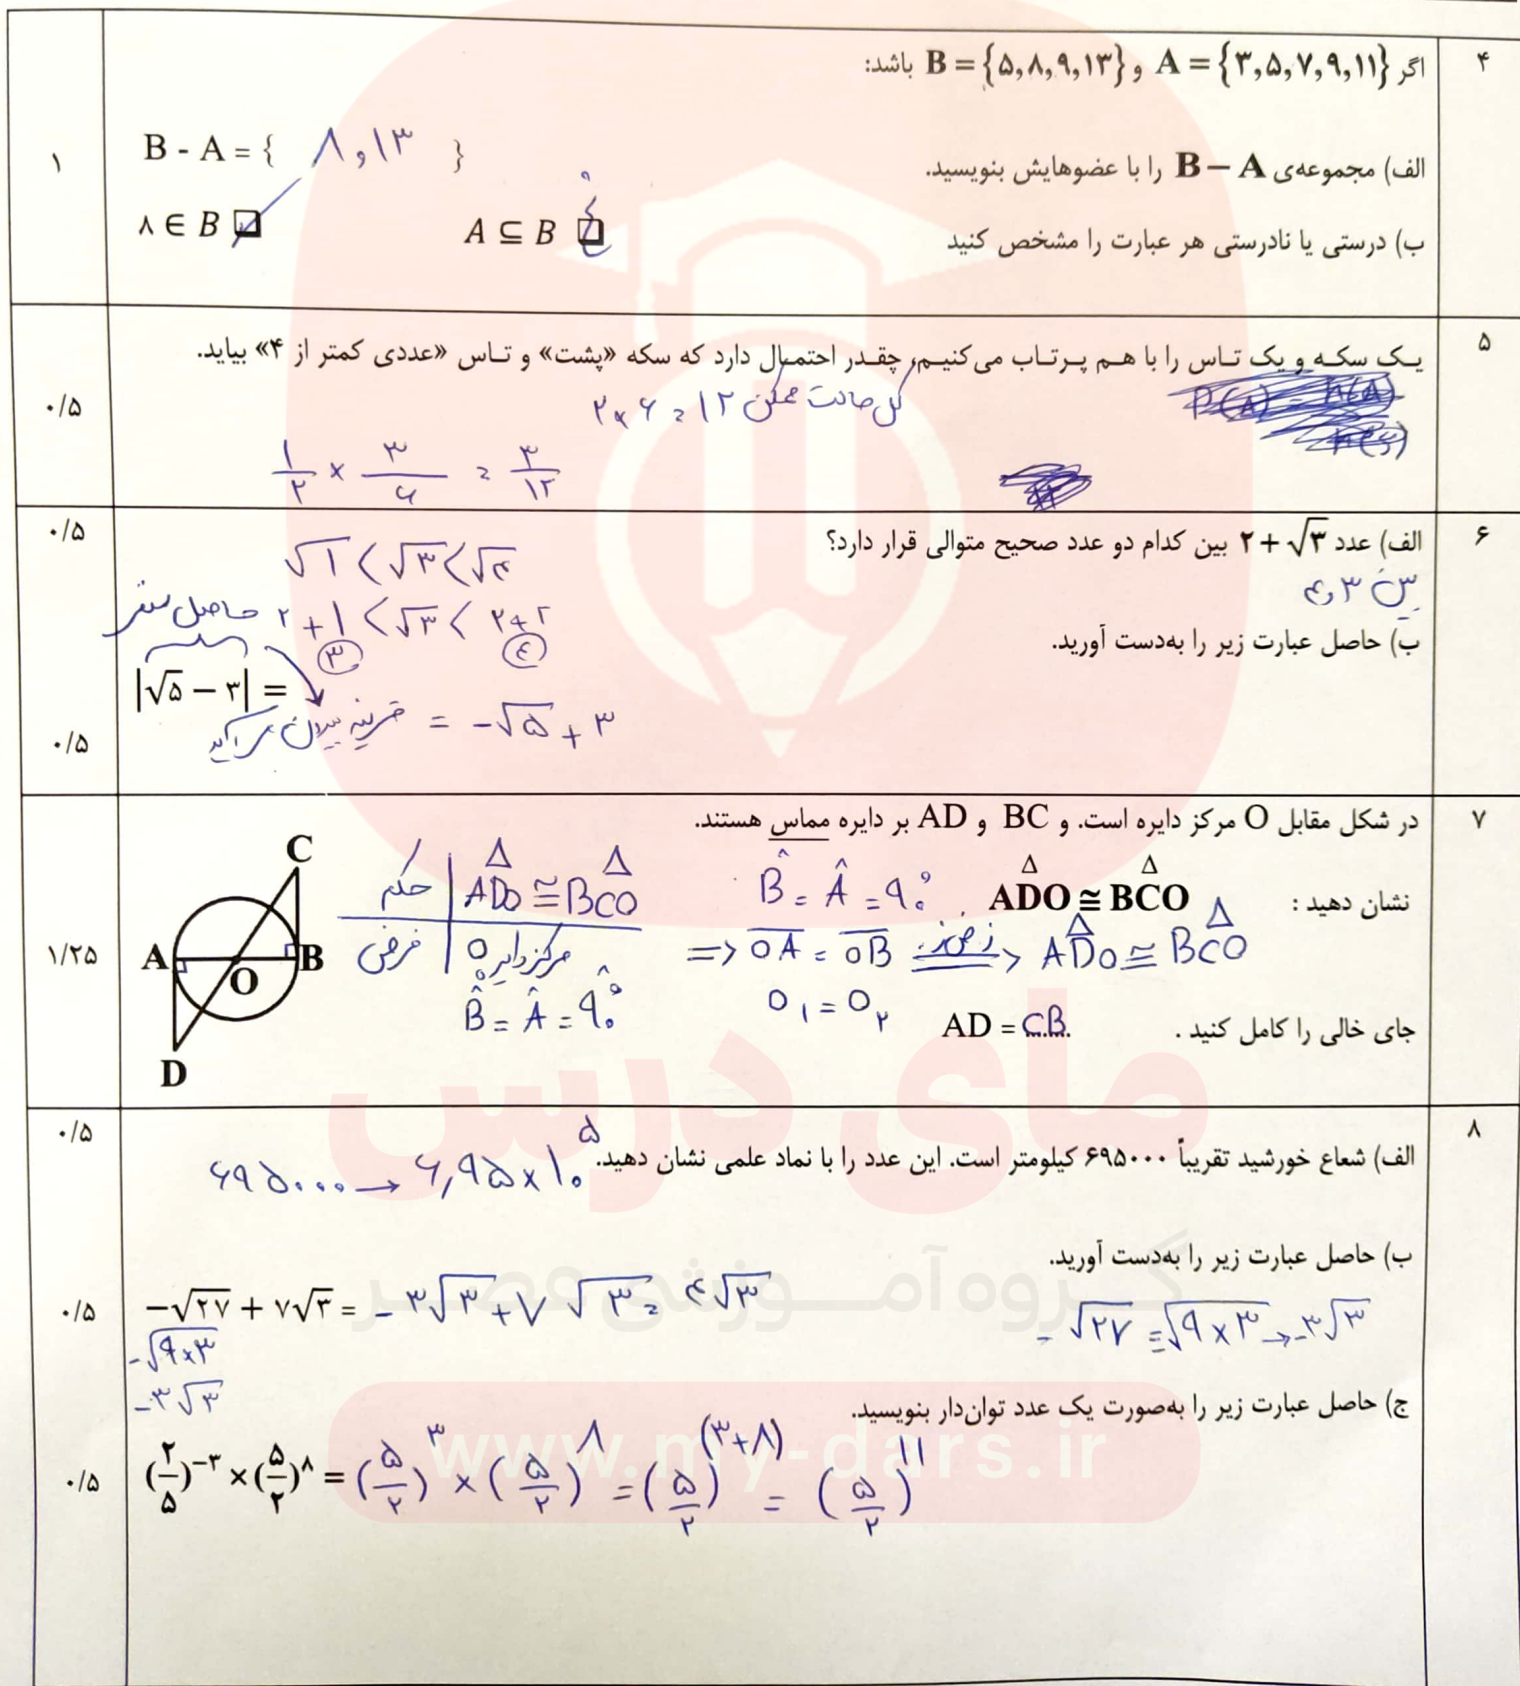 ۴
اگر A = {۳,۵,۷,۹,۱۱} و B = {۵,۸,۹,۱۳} باشد:
۱
الف) مجموعه‌ی B − A را با عضوهایش بنویسید.
B - A = { ۸ و ۱۳ }
ب) درستی یا نادرستی هر عبارت را مشخص کنید
A ⊆ B غ
۸ ∈ B
۵
یک سکه و یک تاس را با هم پرتاب می‌کنیم، چقدر احتمال دارد که سکه «پشت» و تاس «عددی کمتر از ۴» بیاید.
۰/۵
کل حالت ممکن ۲×۶=۱۲
۱/۲ × ۳/۶ = ۳/۱۲
۶
الف) عدد ۲+√۳ بین کدام دو عدد صحیح متوالی قرار دارد؟
۰/۵
بین ۳ و ۴
√۱ < √۳ < √۴
۲+۱ < √۳ < ۲+۲
۳ ۴
ب) حاصل عبارت زیر را به‌دست آورید.
حاصل منفی
|√۵ − ۳| =
قرینه بیرون می‌آید = -√۵ + ۳
۰/۵
۷
در شکل مقابل O مرکز دایره است. و BC و AD بر دایره مماس هستند.
نشان دهید : ADO ≅ BCO
B̂ = Â = ۹۰°
حکم | ADO ≅ BCO
فرض | O مرکز دایره
B̂ = Â = ۹۰°
۱/۲۵
=> OA = OB => ز ض ز ADO ≅ BCO
O۱ = O۲
جای خالی را کامل کنید . AD = CB
C
A
B
O
D
۸
الف) شعاع خورشید تقریباً ۶۹۵۰۰۰ کیلومتر است. این عدد را با نماد علمی نشان دهید.
۰/۵
۶۹۵۰۰۰ → ۶,۹۵×۱۰^۵
ب) حاصل عبارت زیر را به‌دست آورید.
۰/۵
−√۲۷ + ۷√۳ = -۳√۳ + ۷√۳ = ۴√۳
-√۲۷ = √۹×۳ → -۳√۳
-√۹×۳
-۳√۳
ج) حاصل عبارت زیر را به‌صورت یک عدد توان‌دار بنویسید.
۰/۵
(۲/۵)^−۳ × (۵/۲)^۸ = (۵/۲)^۳ × (۵/۲)^۸ = (۵/۲)^(۳+۸) = (۵/۲)^۱۱
مای درس
گروه آموزشی عصر
www.my-dars.ir